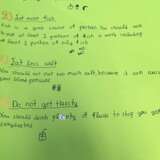 Eat more fish
Fish is a good source of protein. You should aim
to eat at least 2 portion of fish a week including
at least 1 portion of oily fish
Eat less salt
You should not eat too much salt, because it can raise
your blood pressure
Do not get thirsty
You should drink plenty of fluids to stop you getting
dehydrated